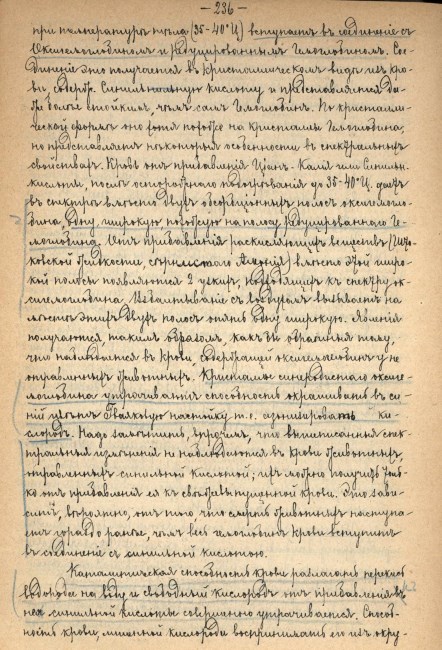 — 236 —
при температурѣ тѣла (35-40° Ц) вступаетъ въ соединеніе съ
Оксигемоглобиномъ и редуцированнымъ Гемоглобиномъ. Сое-
диненіе это получается въ кристаллическомъ видѣ изъ кро-
ви, содерж. Синильную кислоту и представляется да-
же болѣе стойкимъ, чѣмъ самъ Гемоглобинъ. По кристалли-
ческой формѣ оно хотя похоже на кристаллы Гемоглобина,
но представляетъ нѣкоторыя особенности въ спектральныхъ
свойствахъ. Кровь отъ прибавленія Ціанъ-Калія или Синильн.
кислоты, послѣ осторожнаго подогрѣванія до 35-40° Ц. даетъ
въ спектрѣ вмѣсто двухъ абсорпціонныхъ полосъ оксигемо-
глобина одну широкую похожую на полосу редуцированнаго Ге-
моглобина. Отъ прибавленія раскисляющихъ веществъ (
жидкости, сѣрнистаго Аммонія) вмѣсто этой широ-
кой полосы появляются 2 узкихъ, подходящихъ къ спектру ок-
сигемоглобина. Взбалтываніе съ воздухомъ вызываетъ на
мѣсто этихъ двухъ полосъ опять одну широкую. Явленія
получаются такимъ образомъ, какъ бы обратныя тому,
что наблюдается въ крови, содержащей оксигемоглобинъ у не
отравленныхъ животныхъ. Кристаллы оксиге-
моглобина утрачиваютъ способность окрашивать въ си-
ній цвѣтъ Гваяковую настойку т. е. озонизировать ки-
слородъ. Надо замѣтить, впрочемъ, что вышеписанныя спек-
тральныя измѣненія не наблюдаются въ крови животныхъ,
отравленныхъ синильной кислотой; ихъ можно получить толь-
ко отъ прибавленія ея къ свѣжевыпущенной крови. Это зави-
ситъ, вѣроятно, отъ того что смерть животныхъ наступа-
етъ гораздо ранѣе, чѣмъ весь гемоглобинъ крови вступитъ
въ соединеніе съ синильной кислотою.
Каталитическая способность крови разлагать перекись
водорода на воду и свободный кислородъ отъ прибавленія къ
ней синильной кислоты совершенно утрачивается. Способ-
ность крови, лишенной кислорода воспринимать его изъ окру-